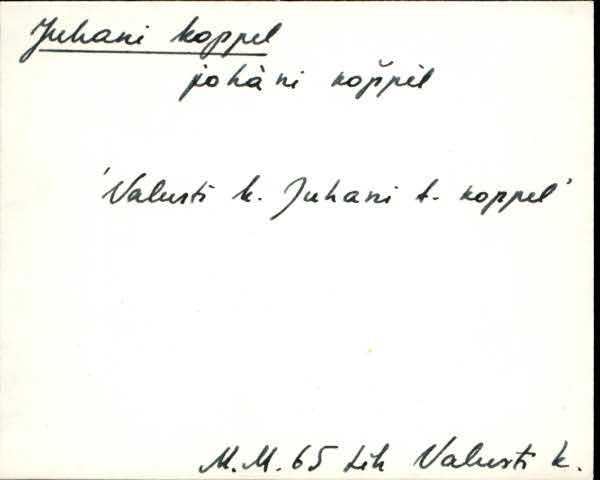 Juhani koppel
johàni kop̆pèl
'Valusti k. Juhani t. koppel'
M.M. 65 Lih Valusti k.